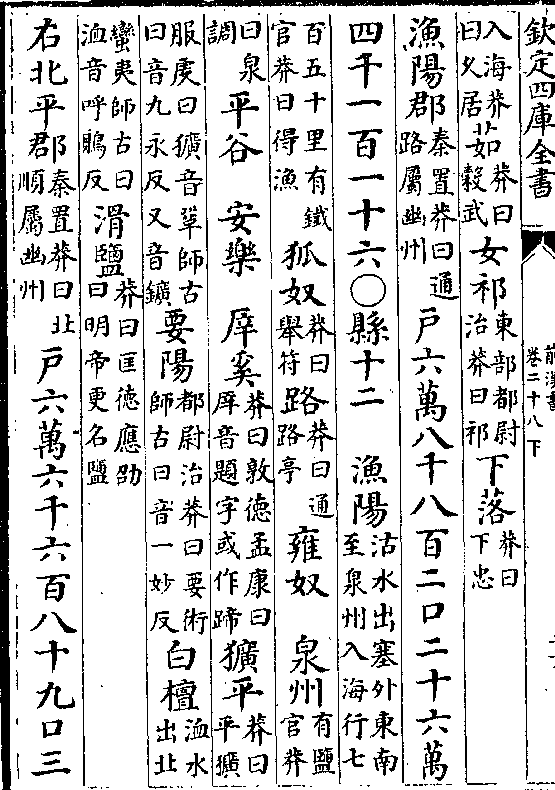 欽定四庫全書
前漢書
卷二十八下
入海莽曰久居茹莽曰穀武女祁東部都尉治莽曰祁下落莽曰下忠
漁陽郡秦置莽曰通路屬幽州戶六萬八千八百二口二十六萬
四千一百一十六○縣十二 漁陽沽水出塞外東南至泉州入海行七
百五十里有鐵官莽曰得漁狐奴莽曰舉符路莽曰通路亭雍奴 泉州有鹽官莽
曰泉調平谷 安樂 厗奚莽曰敦德孟康曰厗音題字或作蹄獷平莽曰平獷
服虔曰獷音鞏師古曰音九永反又音鑛要陽都尉治莽曰要術師古曰音一妙反白檀洫水出北
蠻夷師古曰洫音呼鵙反滑鹽莽曰匡德應劭曰明帝更名鹽
右北平郡秦置莽曰北順屬幽州戶六萬六千六百八十九口三